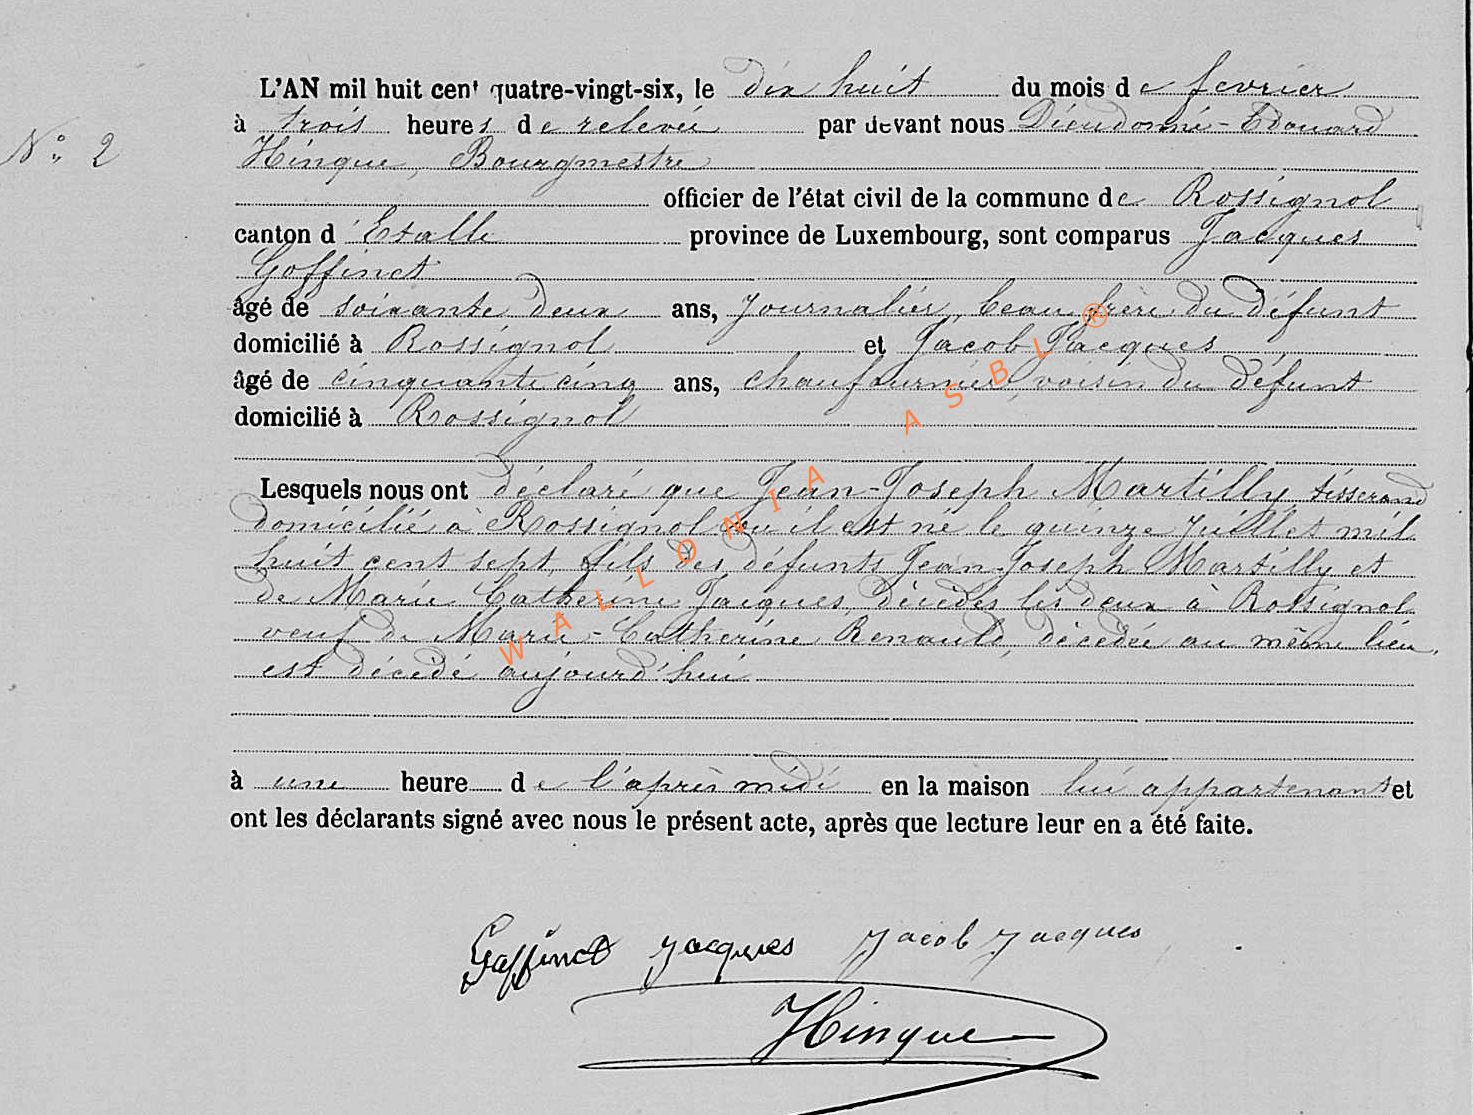 L'AN mil huit cent quatre-vingt-six, le dix huit du mois de fevrier
à trois heures de relevée par devant nous Dieudonné-Edouard
N° 2 Hinque, Bourgmestre
officier de l'état civil de la commune de Rossignol
canton d'Etalle province de Luxembourg, sont comparus Jacques
Goffinet
âgé de soixante deux ans, journalier, beau frère du défunt
domicilié à Rossignol et Jacob Jacques
âgé de cinquante cinq ans, chaufournier, voisin du défunt
domicilié à Rossignol
Lesquels nous ont déclaré que Jean-Joseph Martilly tisserand
domicilié à Rossignol ou il est né le quinze juillet mil
huit cent sept, fils des défunts Jean-Joseph Martilly et
de Marie Catherine Jacques, décédés les deux à Rossignol
veuf de Marie-Catherine Renauld, décédée au même lieu,
est décédé aujourd'hui
à une heure de l'après midi en la maison lui appartenant et
ont les déclarants signé avec nous le présent acte, après que lecture leur en a été faite.
Goffinet Jacques Jacob Jacques
Hinque
WALLONIA ASBL ®